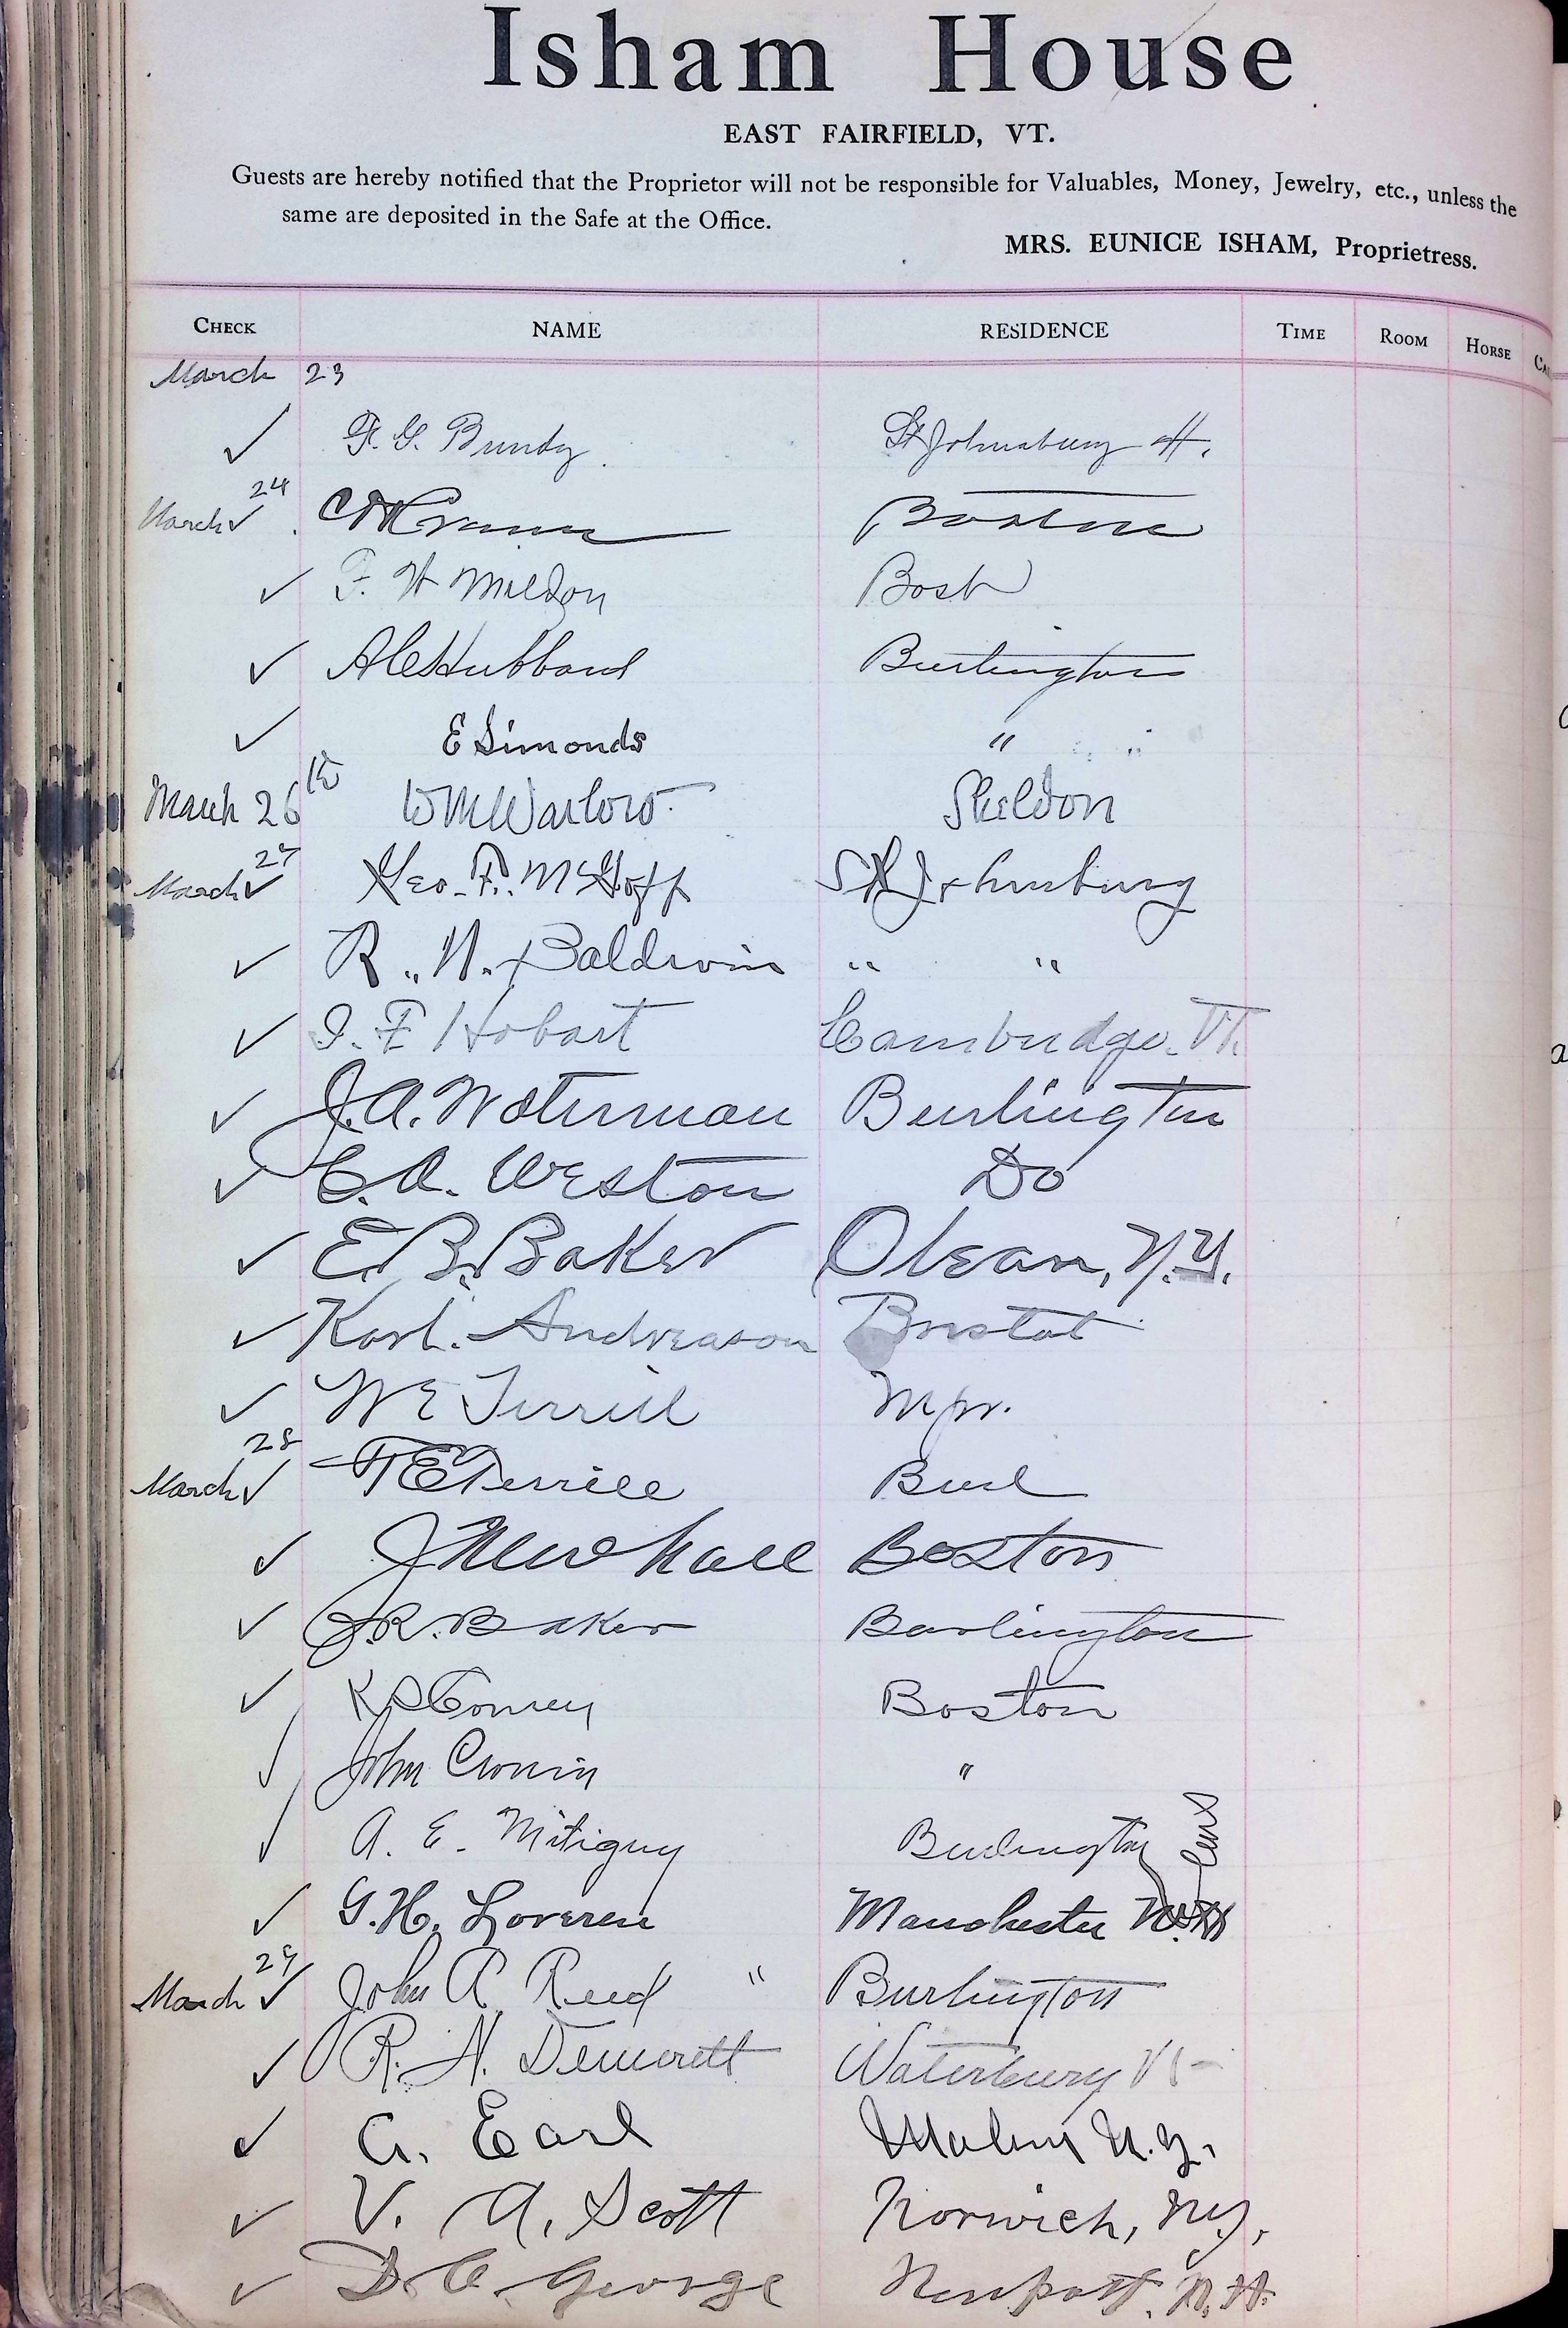 Isham House
EAST FAIRFIELD, VT.
Guests are hereby notified that the Proprietor will not be responsible for Valuables, Money, Jewelry, etc., unless the
same are deposited in the Safe at the Office.
MRS. EUNICE ISHAM, Proprietress.
CHECK NAME RESIDENCE TIME ROOM HORSE
March 23
✓ F. G. Bundy. St Johnsbury
24
March ✓ Boston
✓ F. W Meldon Bost
✓ A C Hubbard Burlington
✓ E Simonds "
March 26th WM Warlow Sheldon
27
March ✓ Geo. F. McGoff St Johnsbury
✓ R. N. Baldwin " "
✓ I. F Hobart Cambridge. Vt.
✓ J. A. Waterman Burlington
✓ C. A. Weston Do
✓ E. B. Baker Olean, N.Y.
✓ Karl. Andreason Bristol
✓ W E Terrill Mpr.
28
March ✓ F E Terrill Burl
✓ J Newhall Boston
✓ J. R. Baker Burlington
✓ Boston
✓ John Cronin "
✓ A. E. Mitiguy Burlington
✓ G. H. Loveren Manchester N.H
29
March ✓ John A. Reed " Burlington
✓ R. N. Demerett Waterbury Vt
✓ G. Earl N.Y.
✓ V. A. Scott Norwich, N.Y.
✓ D. C. George Newport, N.H.